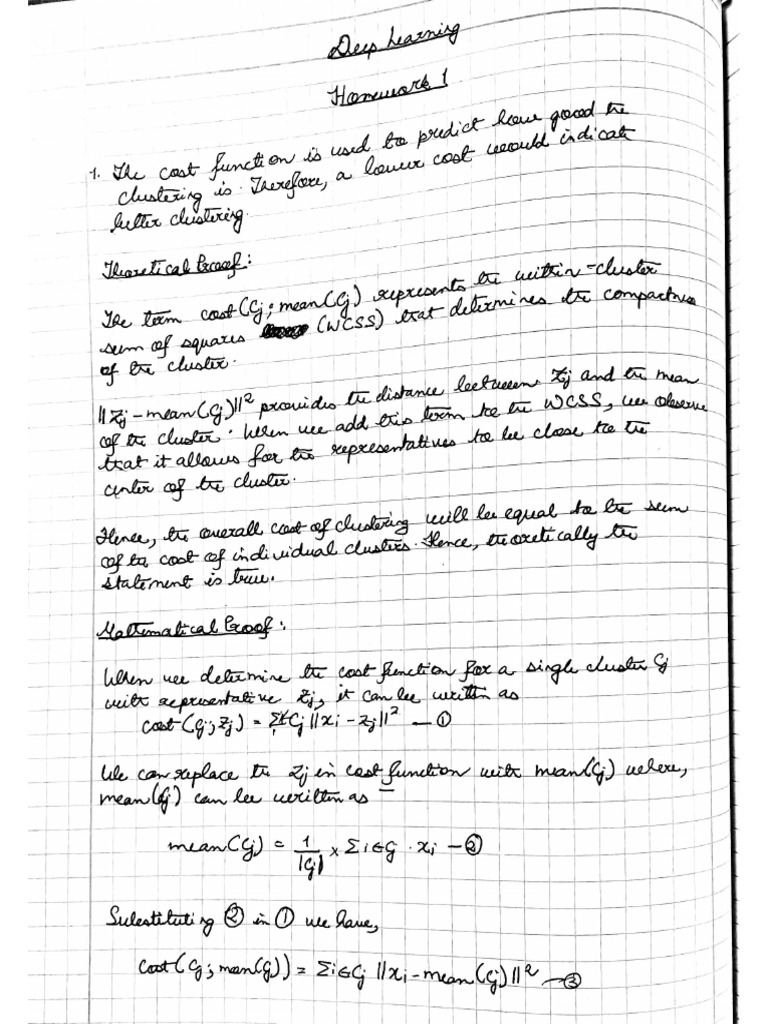 Deep Learning
Homework 1
1. The cost function is used to predict how good the
clustering is. Therefore, a lower cost would indicate
better clustering.
Theoretical Proof:
The term cost(Cj; mean(Cj) represents the within-cluster
sum of squares (WCSS) that determines the compactness
of the cluster.
||Zj - mean(Cj)||² provides the distance between Zj and the mean
of the cluster. When we add this term to the WCSS, we observe
that it allows for the representatives to be close to the
center of the cluster.
Hence, the overall cost of clustering will be equal to the sum
of the cost of individual clusters. Hence, theoretically the
statement is true.
Mathematical Proof:
When we determine the cost function for a single cluster Cj
with representative Zj, it can be written as
cost(Cj; Zj) = Σi∈Cj ||xi - zj||² — ①
We can replace the Zj in cost function with mean(Cj) where,
mean(Cj) can be written as —
mean(Cj) = 1/|Cj| × Σi∈Cj · xi — ②
Substituting ② in ① we have,
cost(Cj; mean(Cj)) = Σi∈Cj ||xi - mean(Cj)||² — ③